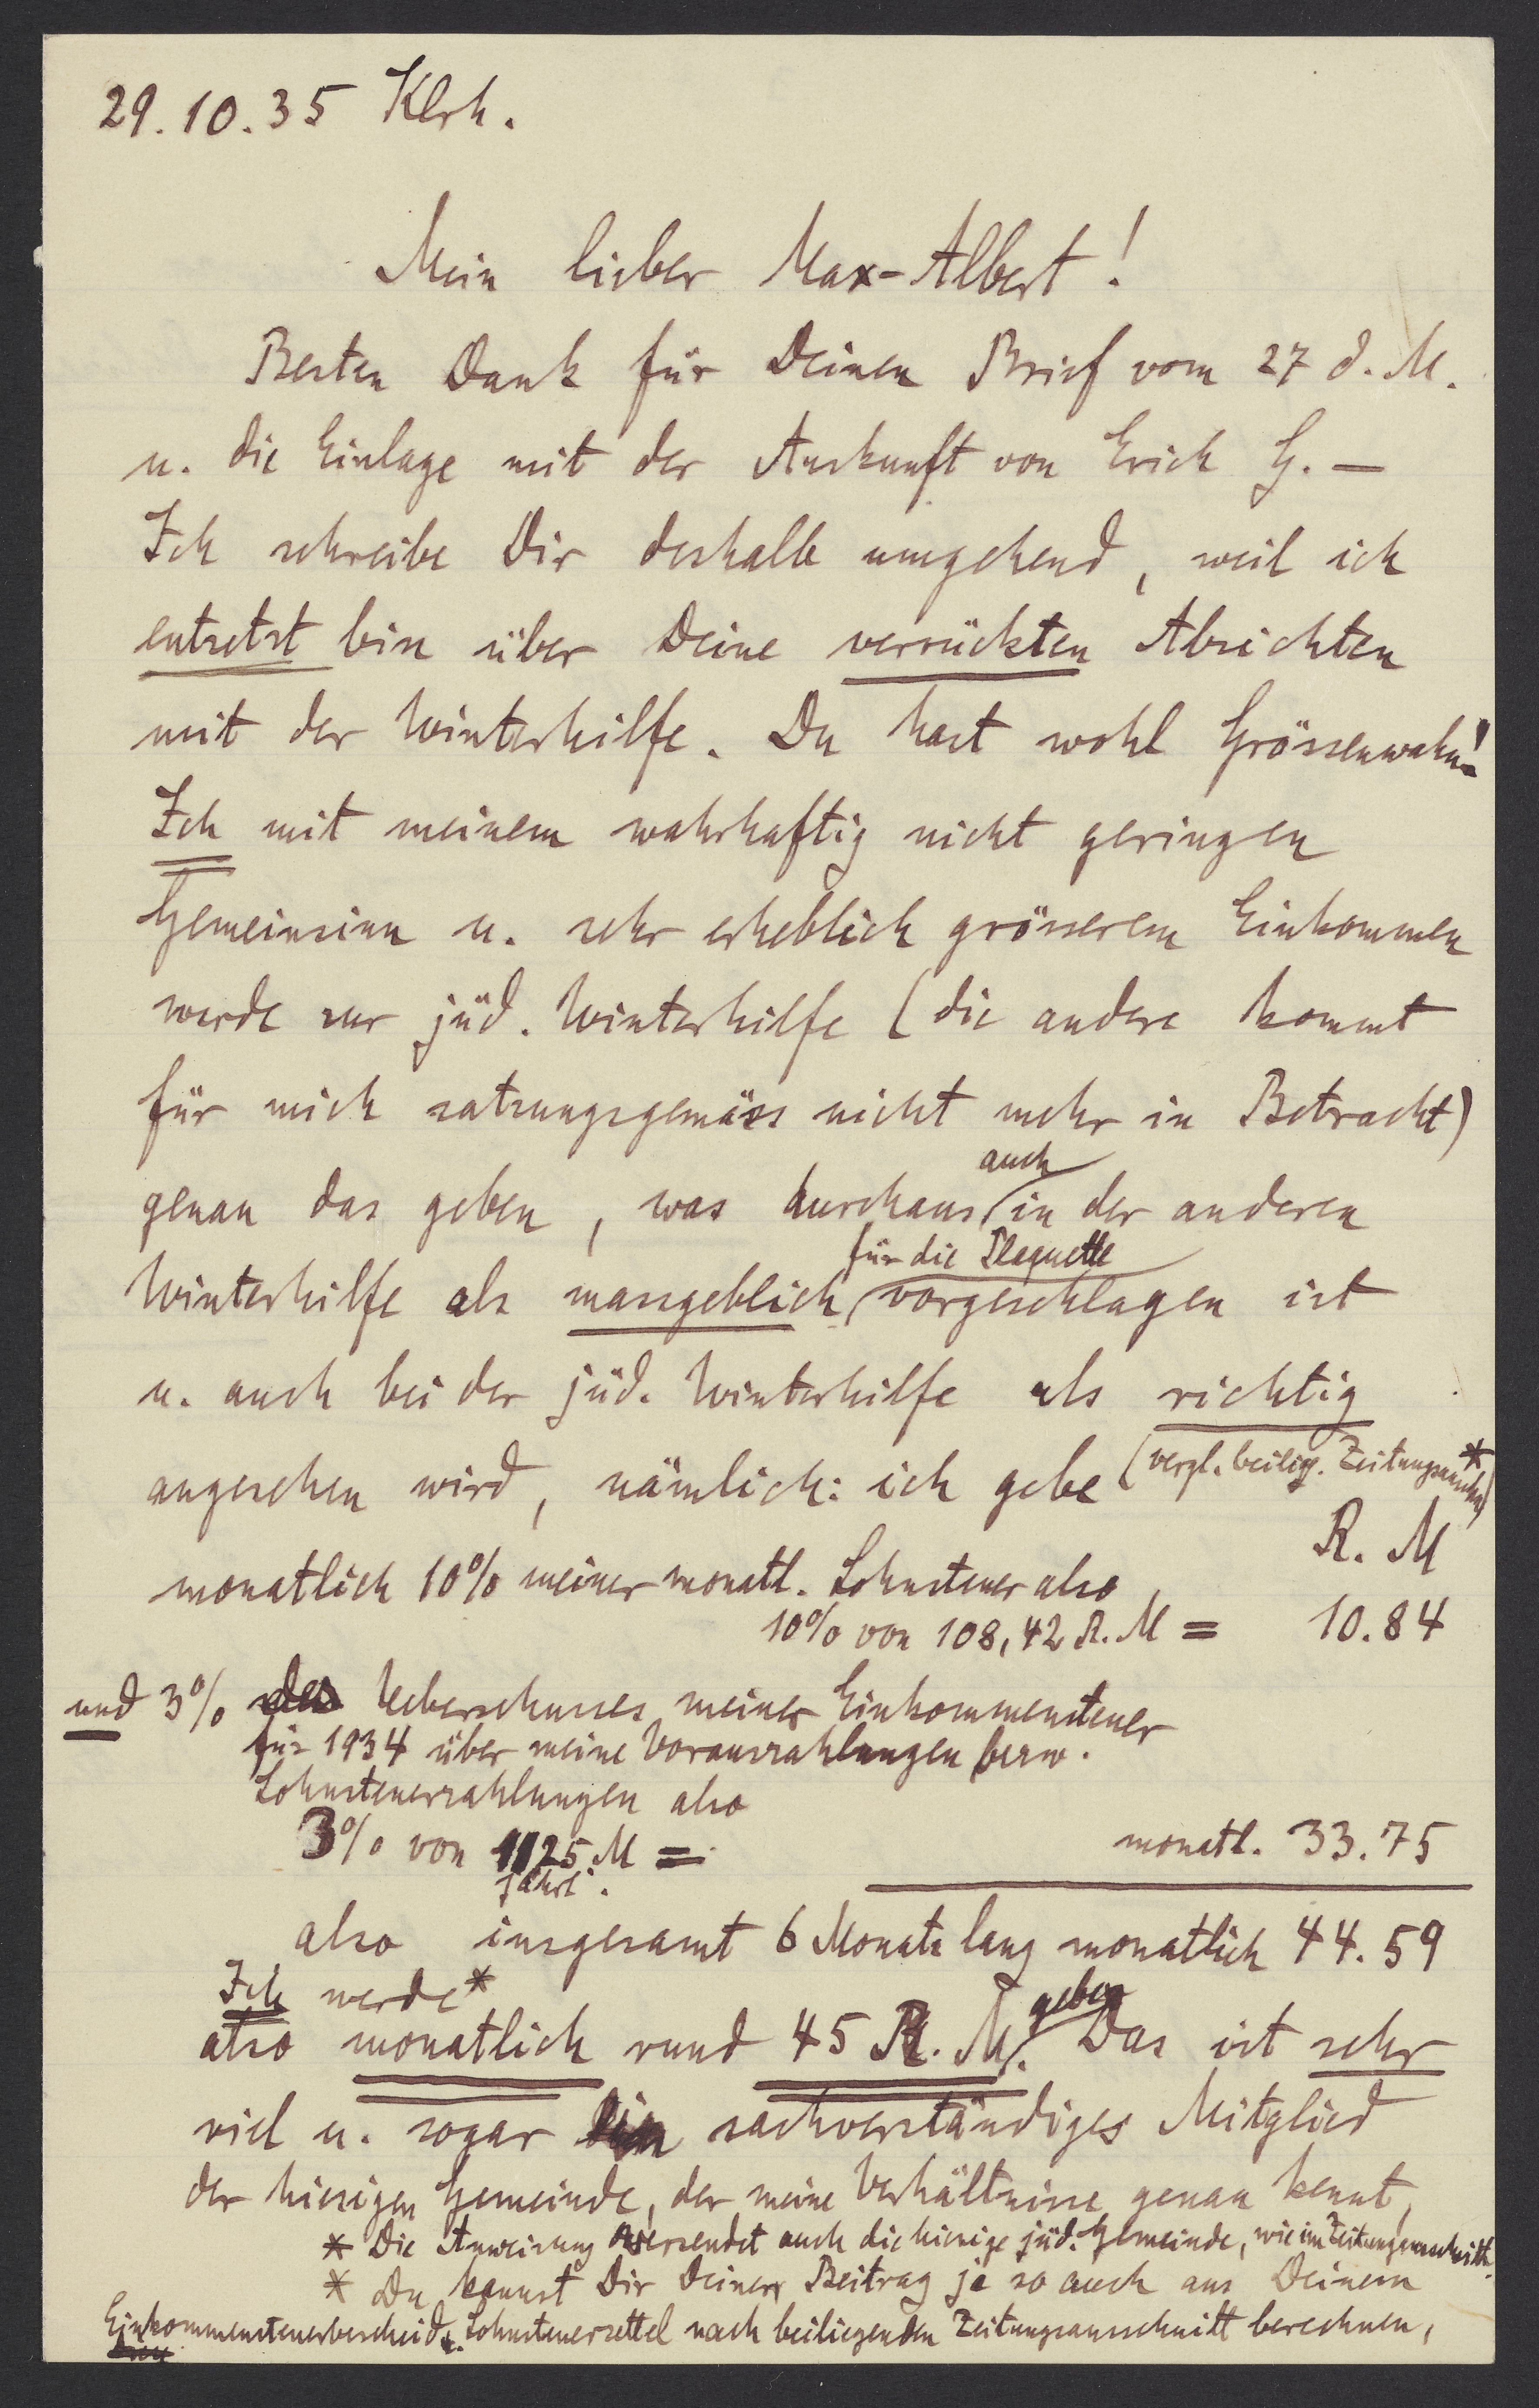 29.10.35 Klrh.
Mein lieber Max-Albert!
Besten Dank für Deinen Brief vom 27 d. M.
u. die Einlage mit der Auskunft von Erich G. —
Ich schreibe Dir deshalb umgehend, weil ich
entsetzt bin über Deine verrückten Absichten
mit der Winterhilfe. Du hast wohl Grössenwahn!
Ich mit meinem wahrhaftig nicht geringen
Gemeinsinn u. sehr erheblich grösserem Einkommen
werde zur jüd. Winterhilfe (die andere kommt
für mich satzungsgemäss nicht mehr in Betracht)
auch
genau das geben, was durchaus in der anderen
für die Plaquette
Winterhilfe als massgeblich vorgeschlagen ist
u. auch bei der jüd. Winterhilfe als richtig
angesehen wird, nämlich: ich gebe (vergl. beilieg. Zeitungsausschn.)*
R. M
monatlich 10% meiner monatl. Lohnsteuer also
10% von 108,42 R. M = 10.84
und 3% des Ueberschusses meiner Einkommensteuer
für 1934 über meine Vorauszahlungen bezw.
Lohnsteuerzahlungen also
3% von 1125 M = monatl. 33.75
jährl.
also insgesamt 6 Monate lang monatlich 44.59
Ich werde* geben
also monatlich rund 45 R. M. Das ist sehr
viel u. sogar ein sachverständiges Mitglied
der hiesigen Gemeinde, der meine Verhältnisse genau kennt,
* Die Anweisung versendet auch die hiesige jüd. Gemeinde, wie im Zeitungsausschnitt.
* Du kannst Dir Deinen Beitrag ja so auch aus Deinem
Einkommensteuerbescheid u. Lohnsteuerzettel nach beiliegenden Zeitungsausschnitt berechnen,